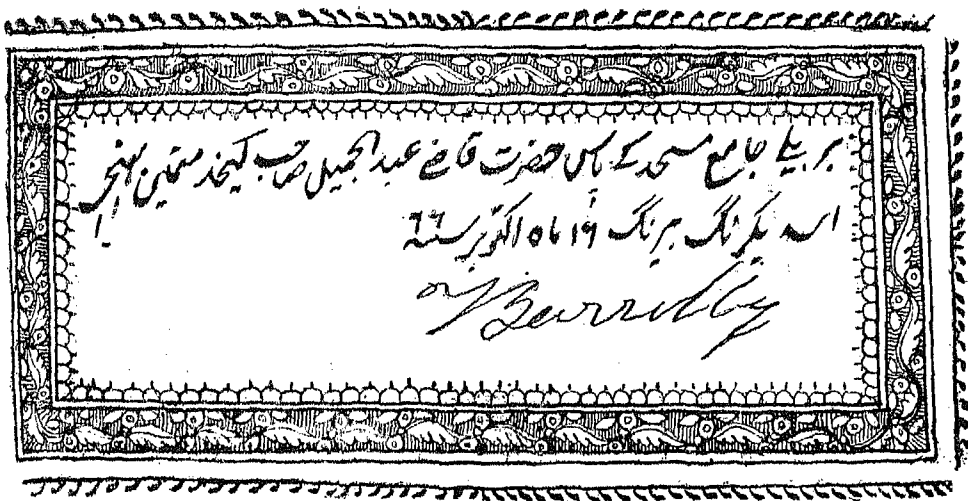 بریلی جامع مسجد کے پاس حضرت قاضی عبد الجمیل صاحب کیخدمتمین پہنچی
اسد یکرنگ بیرنگ ١٦ ماہ اکتوبر سنہ ٦٦
Barrilly